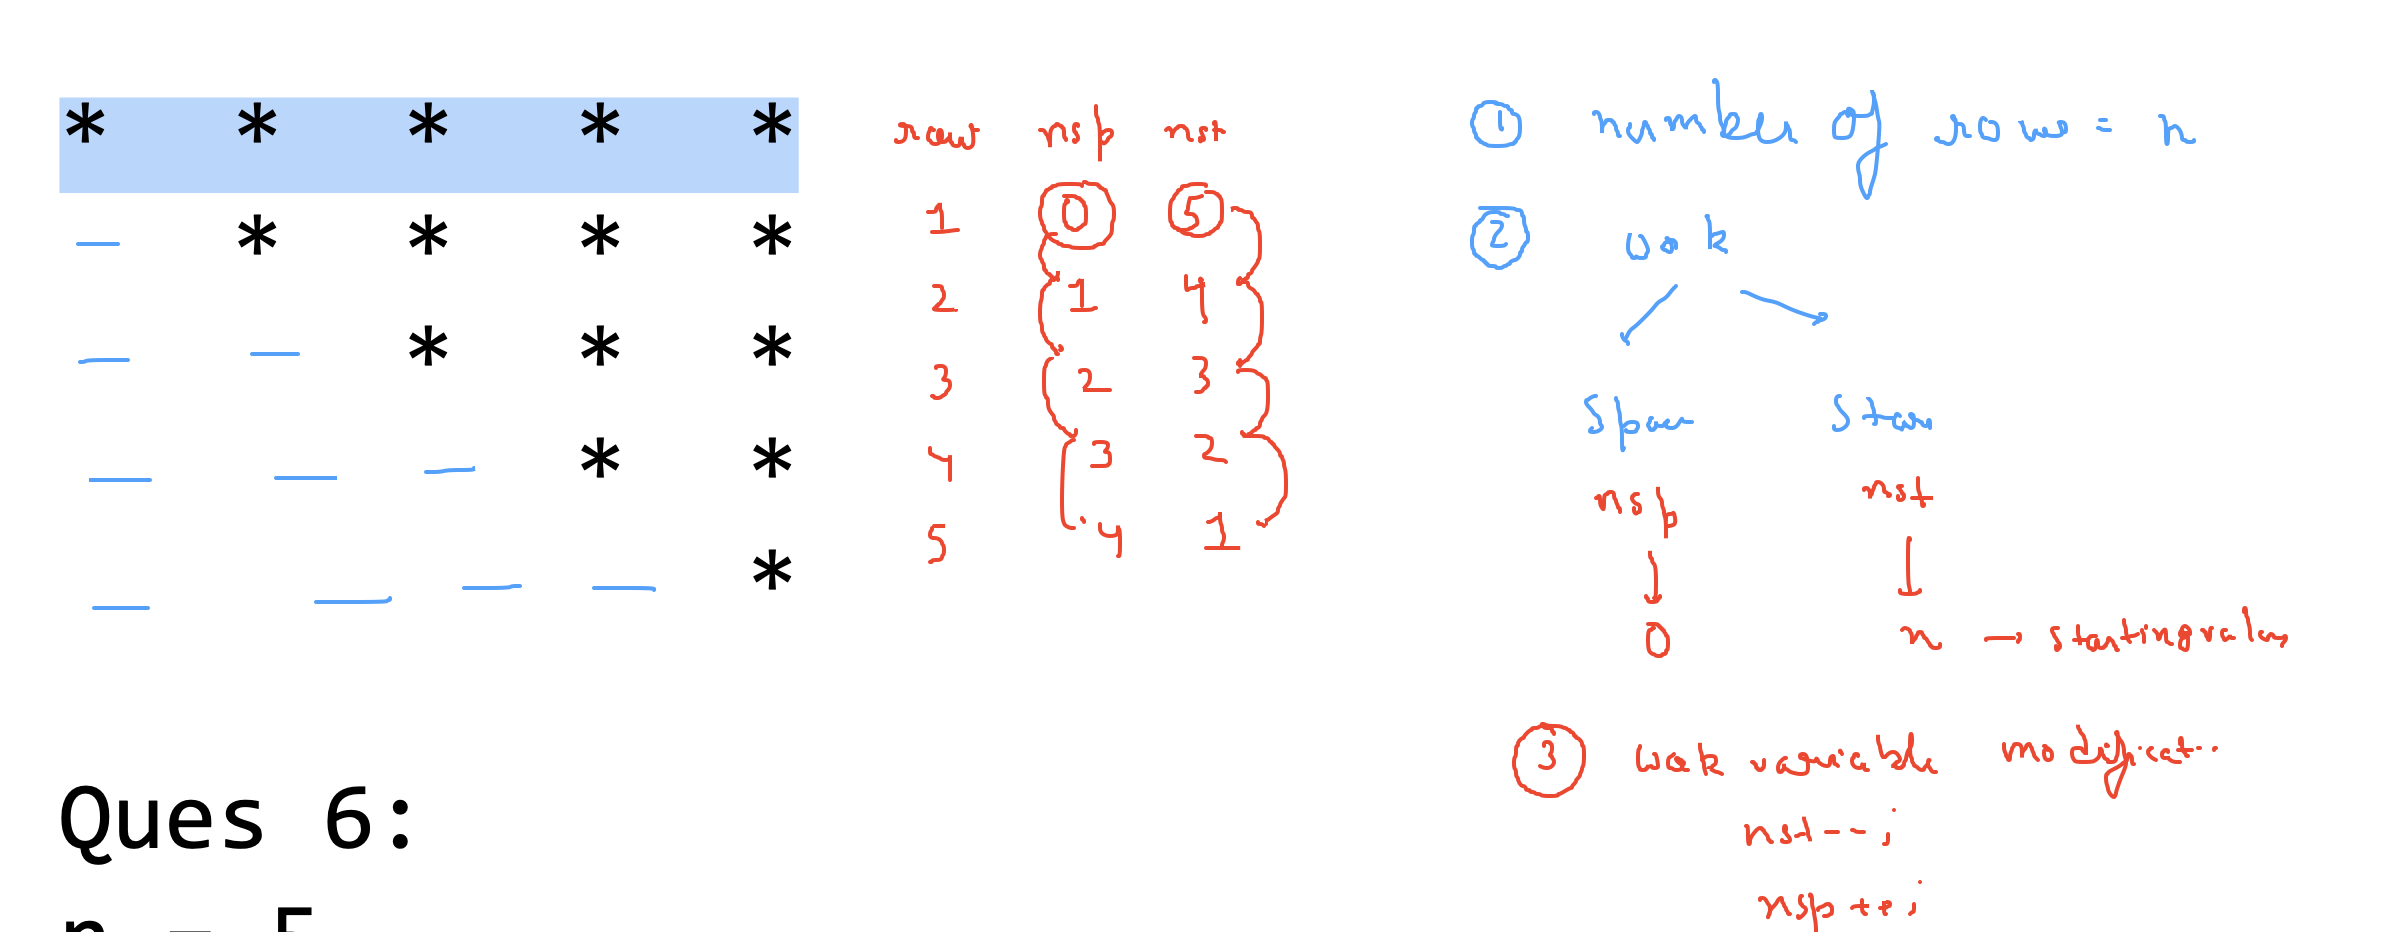 * * * * *
_ * * * *
_ _ * * *
_ _ _ * *
_ _ _ _ *
Ques 6:
n = 5
row nsp nst
1 0 5
2 1 4
3 2 3
4 3 2
5 4 1
1 number of rows = n
2 work
Space Star
nsp nst
0 n → starting value
3 work variable modificat..
nst--;
nsp++;